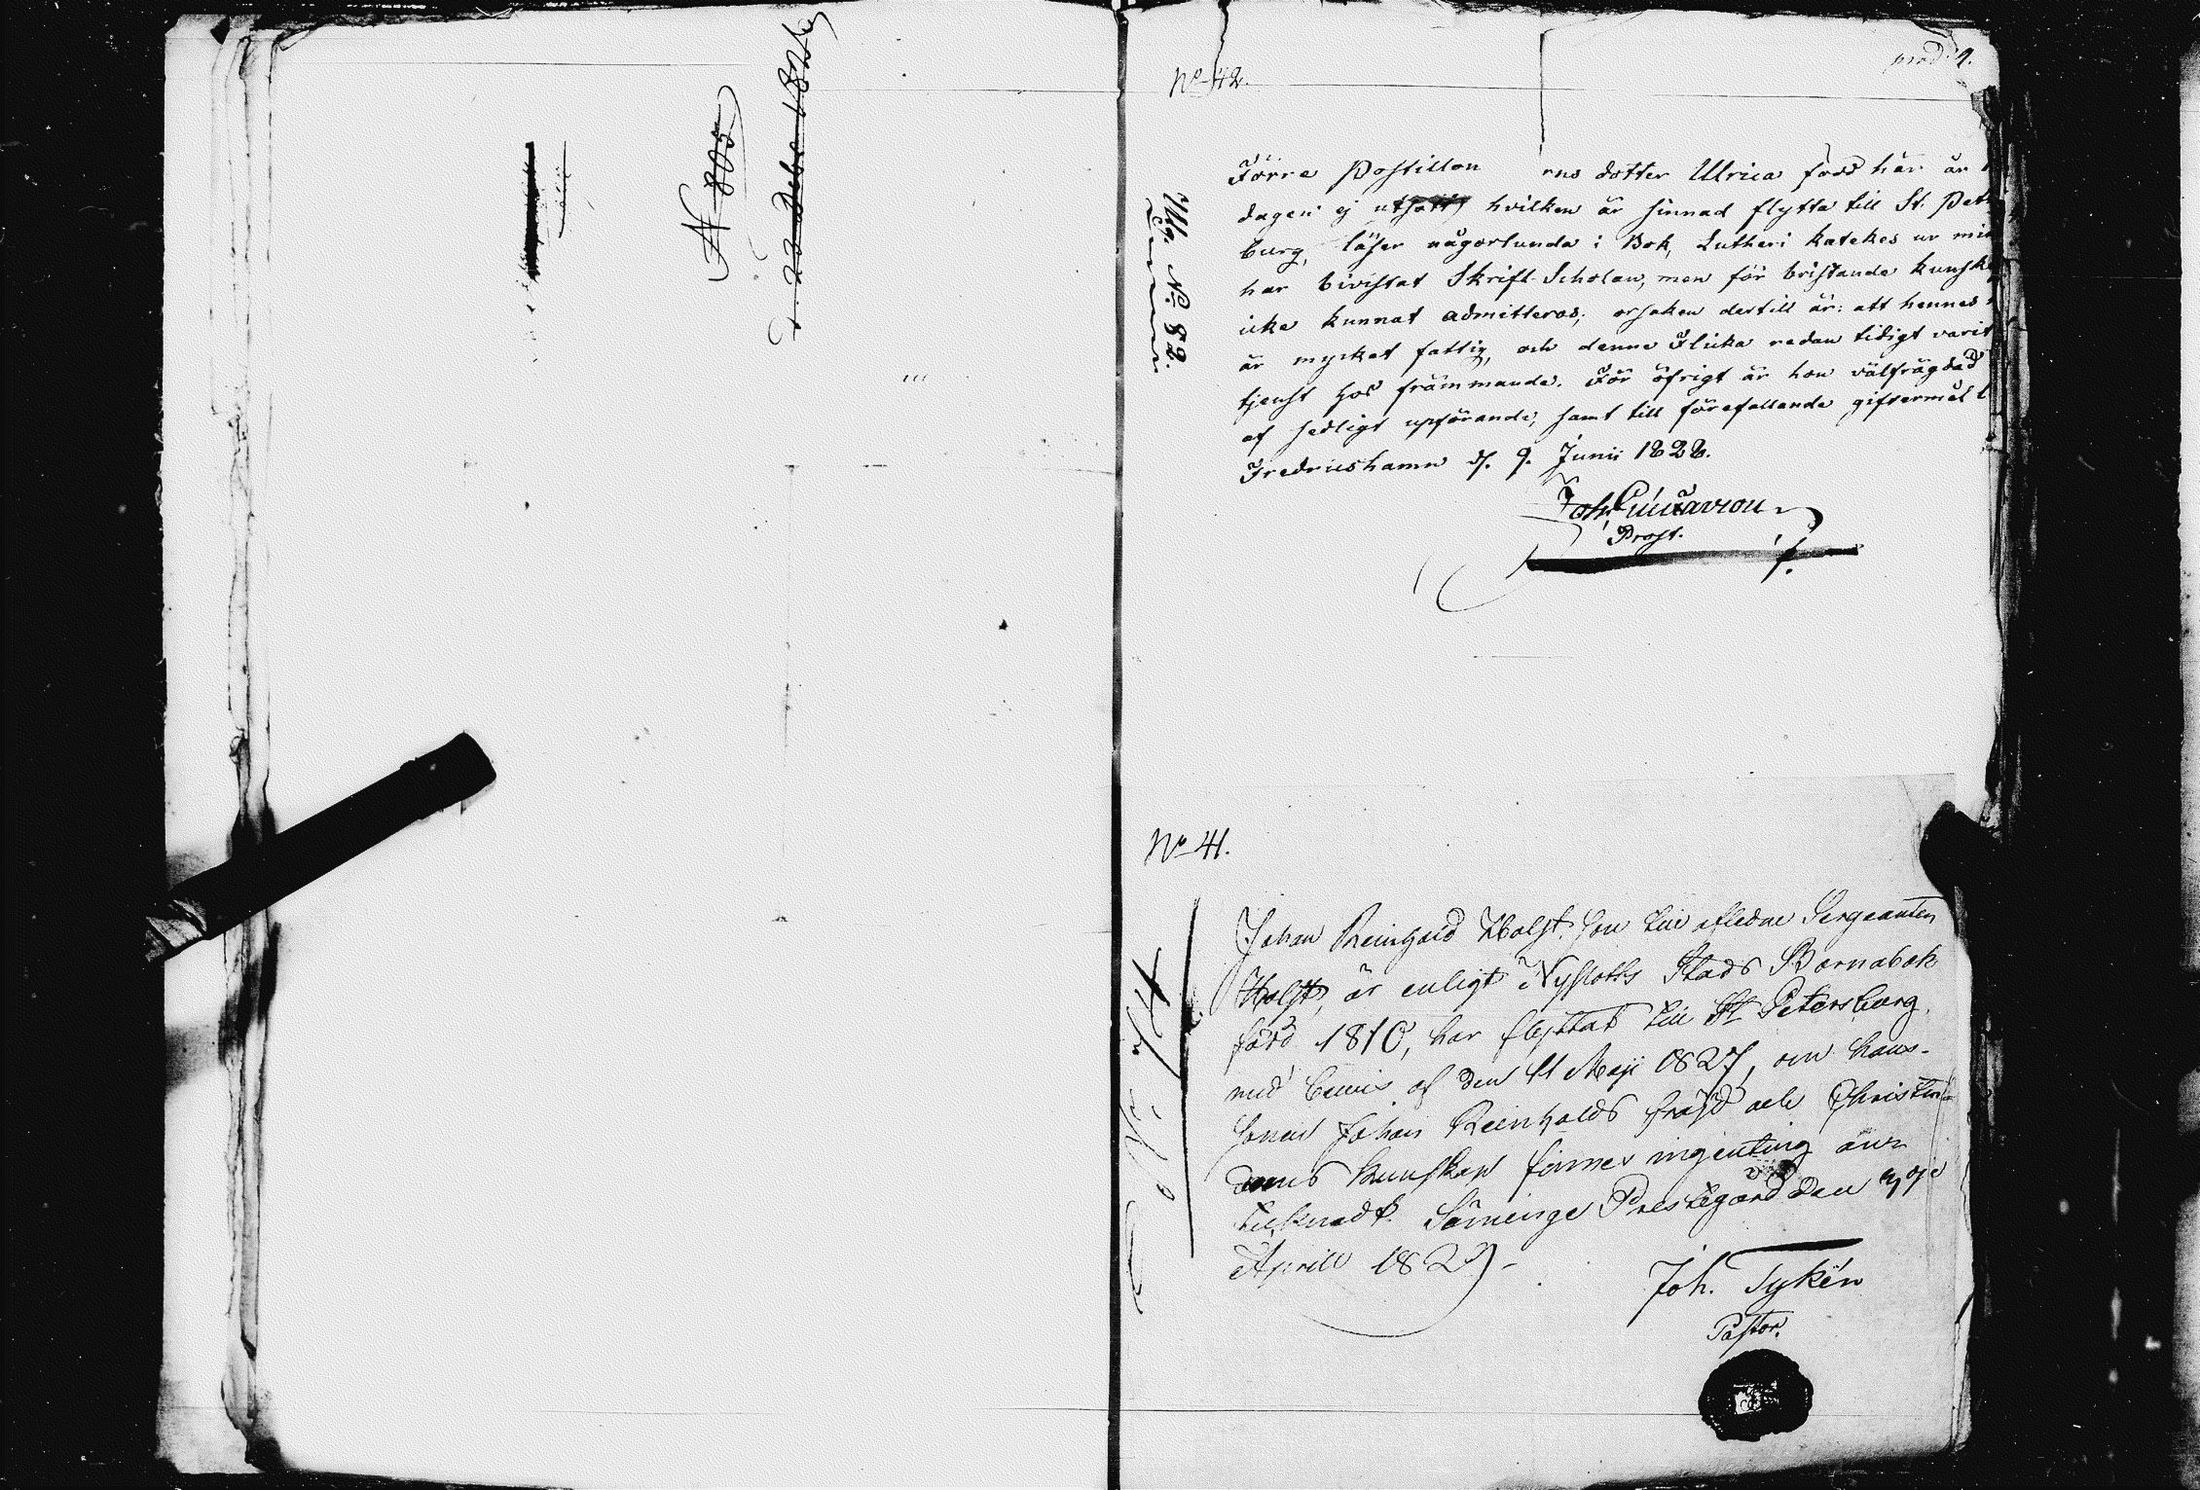 N 805
d. 22 Debr 182
No 42.
prod. 9.
Utg. No 82.
Förre Postillon rns dotter Ulrica född här år
dagen ej utsatt, hvilken är sinnad flytta till St. Pet
burg, läser någorlunda i Bok, Lutheri katekes ur min
har bivistat Skrift-Scholan, men för bristande kunsk
icke kunnat admitteras; orsaken dertill är: att hennes
är mycket fattig, och denne Flicka redan tidigt varit
tjenst hos främmande. För öfrigt är hon välfrägdad
af sedligt upförande, samt till förefallande giftermål l
Fredricshamn d. 9. Junii 1828.
Joh.
Prost.
No 41.
Johan Reinhold Holst, son till aflidne Sergeanten
Holst, är enligt Nyslotts Stads Barnabok
född 1810, har flyttat till St Petersburg
med bevis af den 11 Maji 1827, om hans
Johan Reinholds frejd och Christen
doms kunskap finnes ingenting an
tecknadt. Säminge Prestegård den
Aprill 1829
Joh. Tykén
Pastor.